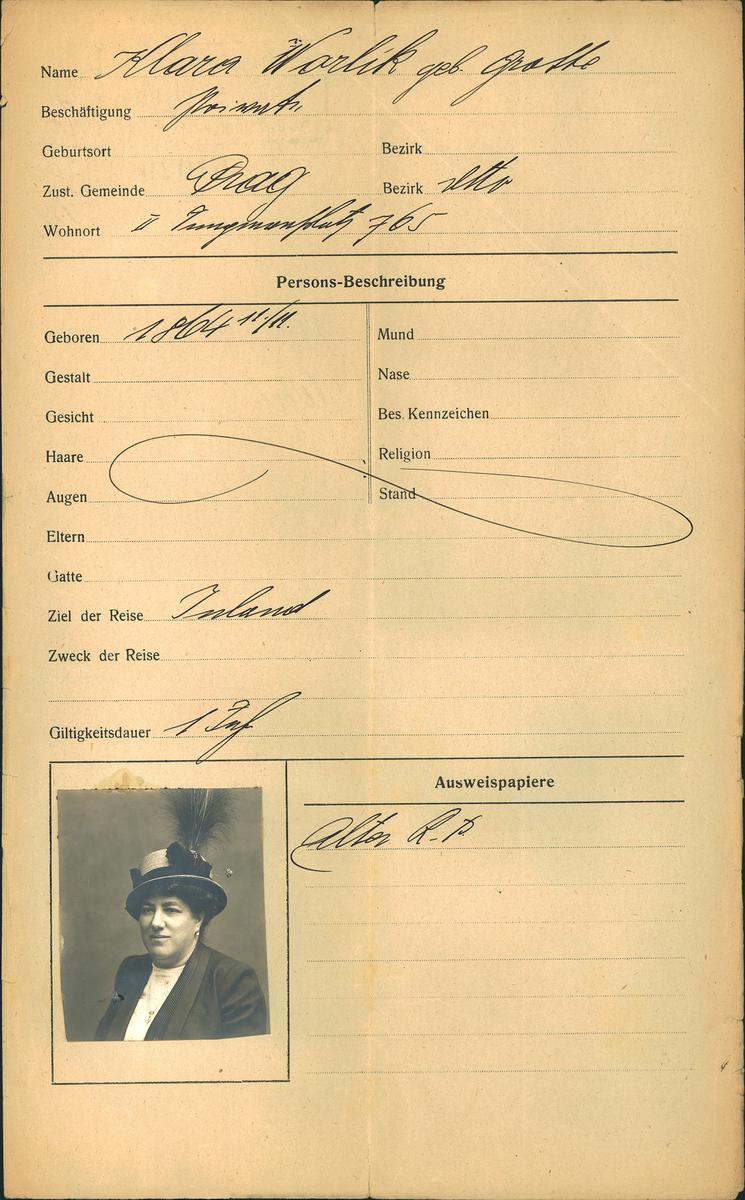 Name Klara Worlik geb. Grotte
Beschäftigung Private
Geburtsort Bezirk
Zust. Gemeinde Prag Bezirk detto
Wohnort II Jungmannplatz 765
Persons-Beschreibung
Geboren 1864 11/11. Mund
Gestalt Nase
Gesicht Bes. Kennzeichen
Haare Religion
Augen Stand
Eltern
Gatte
Ziel der Reise Inland
Zweck der Reise
Giltigkeitsdauer 1 Jahr
Ausweispapiere
Alter R. P.